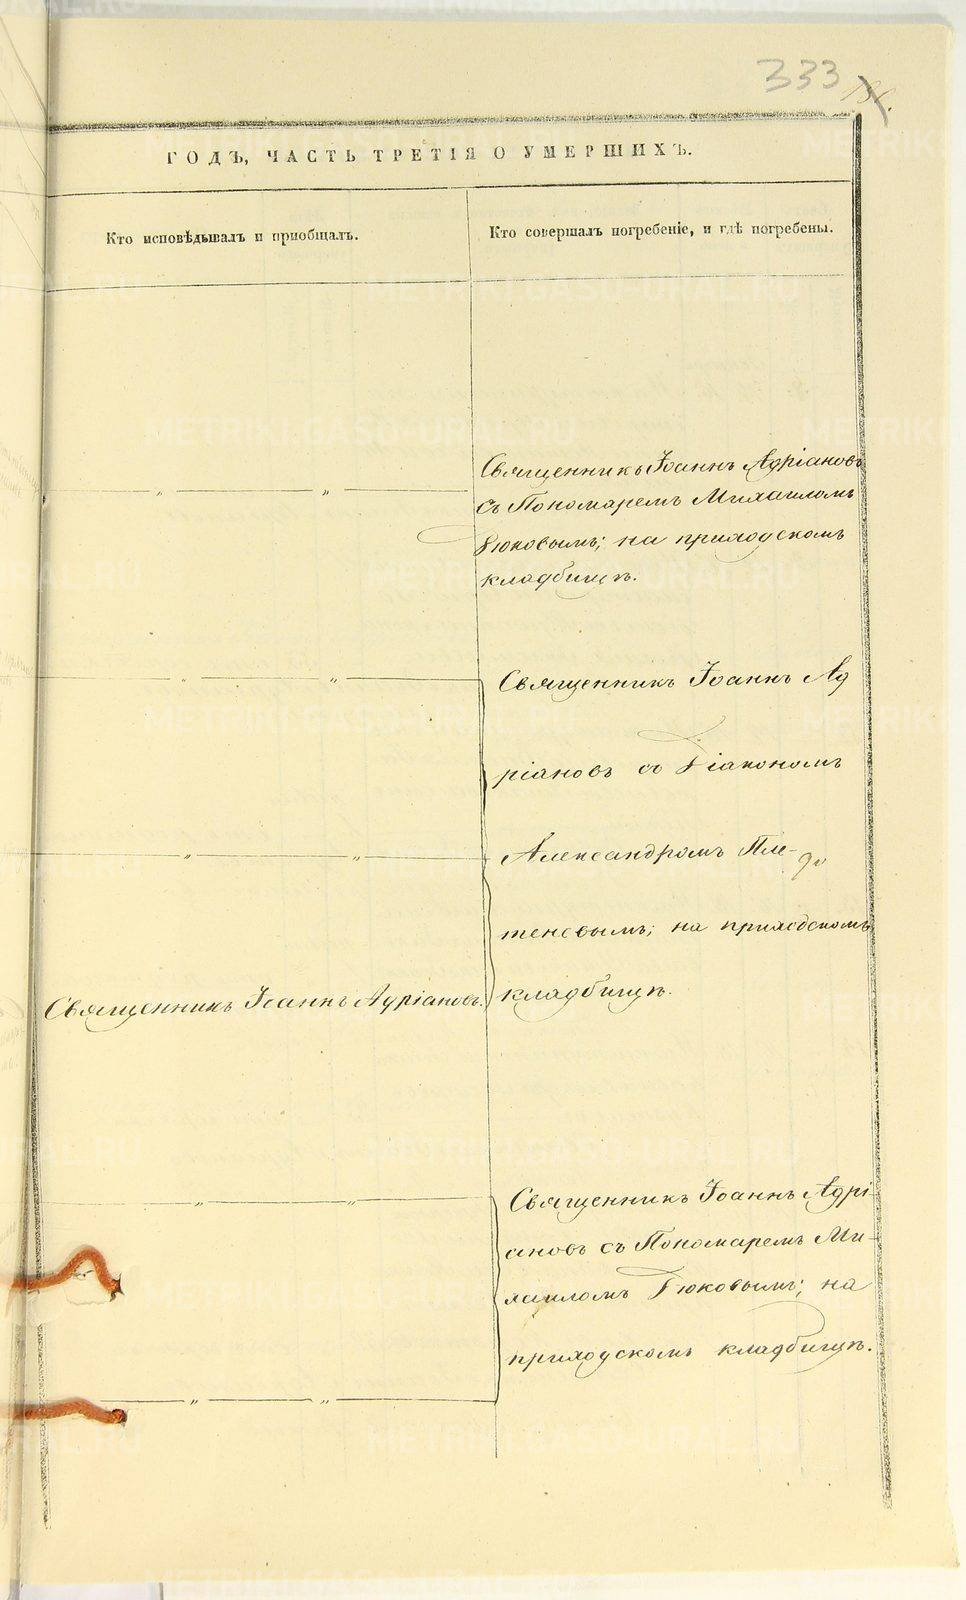 333
ГОДЪ, ЧАСТЬ ТРЕТІЯ О УМЕРШИХЪ.
Кто исповѣдывалъ и приобщалъ.
Кто совершалъ погребеніе, и гдѣ погребены.
— „ — „ —
Священникъ Іоаннъ Адріановъ
съ Пономаремъ Михаиломъ
Гюковымъ; на приходскомъ
кладбищѣ.
— „ — „ —
Священникъ Іоаннъ Ад
ріановъ со Діакономъ
— „ — „ —
Александромъ Пле-
теневымъ; на приходскомъ
Священникъ Іоаннъ Адріановъ.
кладбищѣ.
— „ — „ —
Священникъ Іоаннъ Адрі-
ановъ съ Пономаремъ Ми-
хаиломъ Гюковымъ; на
приходскомъ кладбищѣ.
— „ — „ —
METRIKI.GASO-URAL.RU